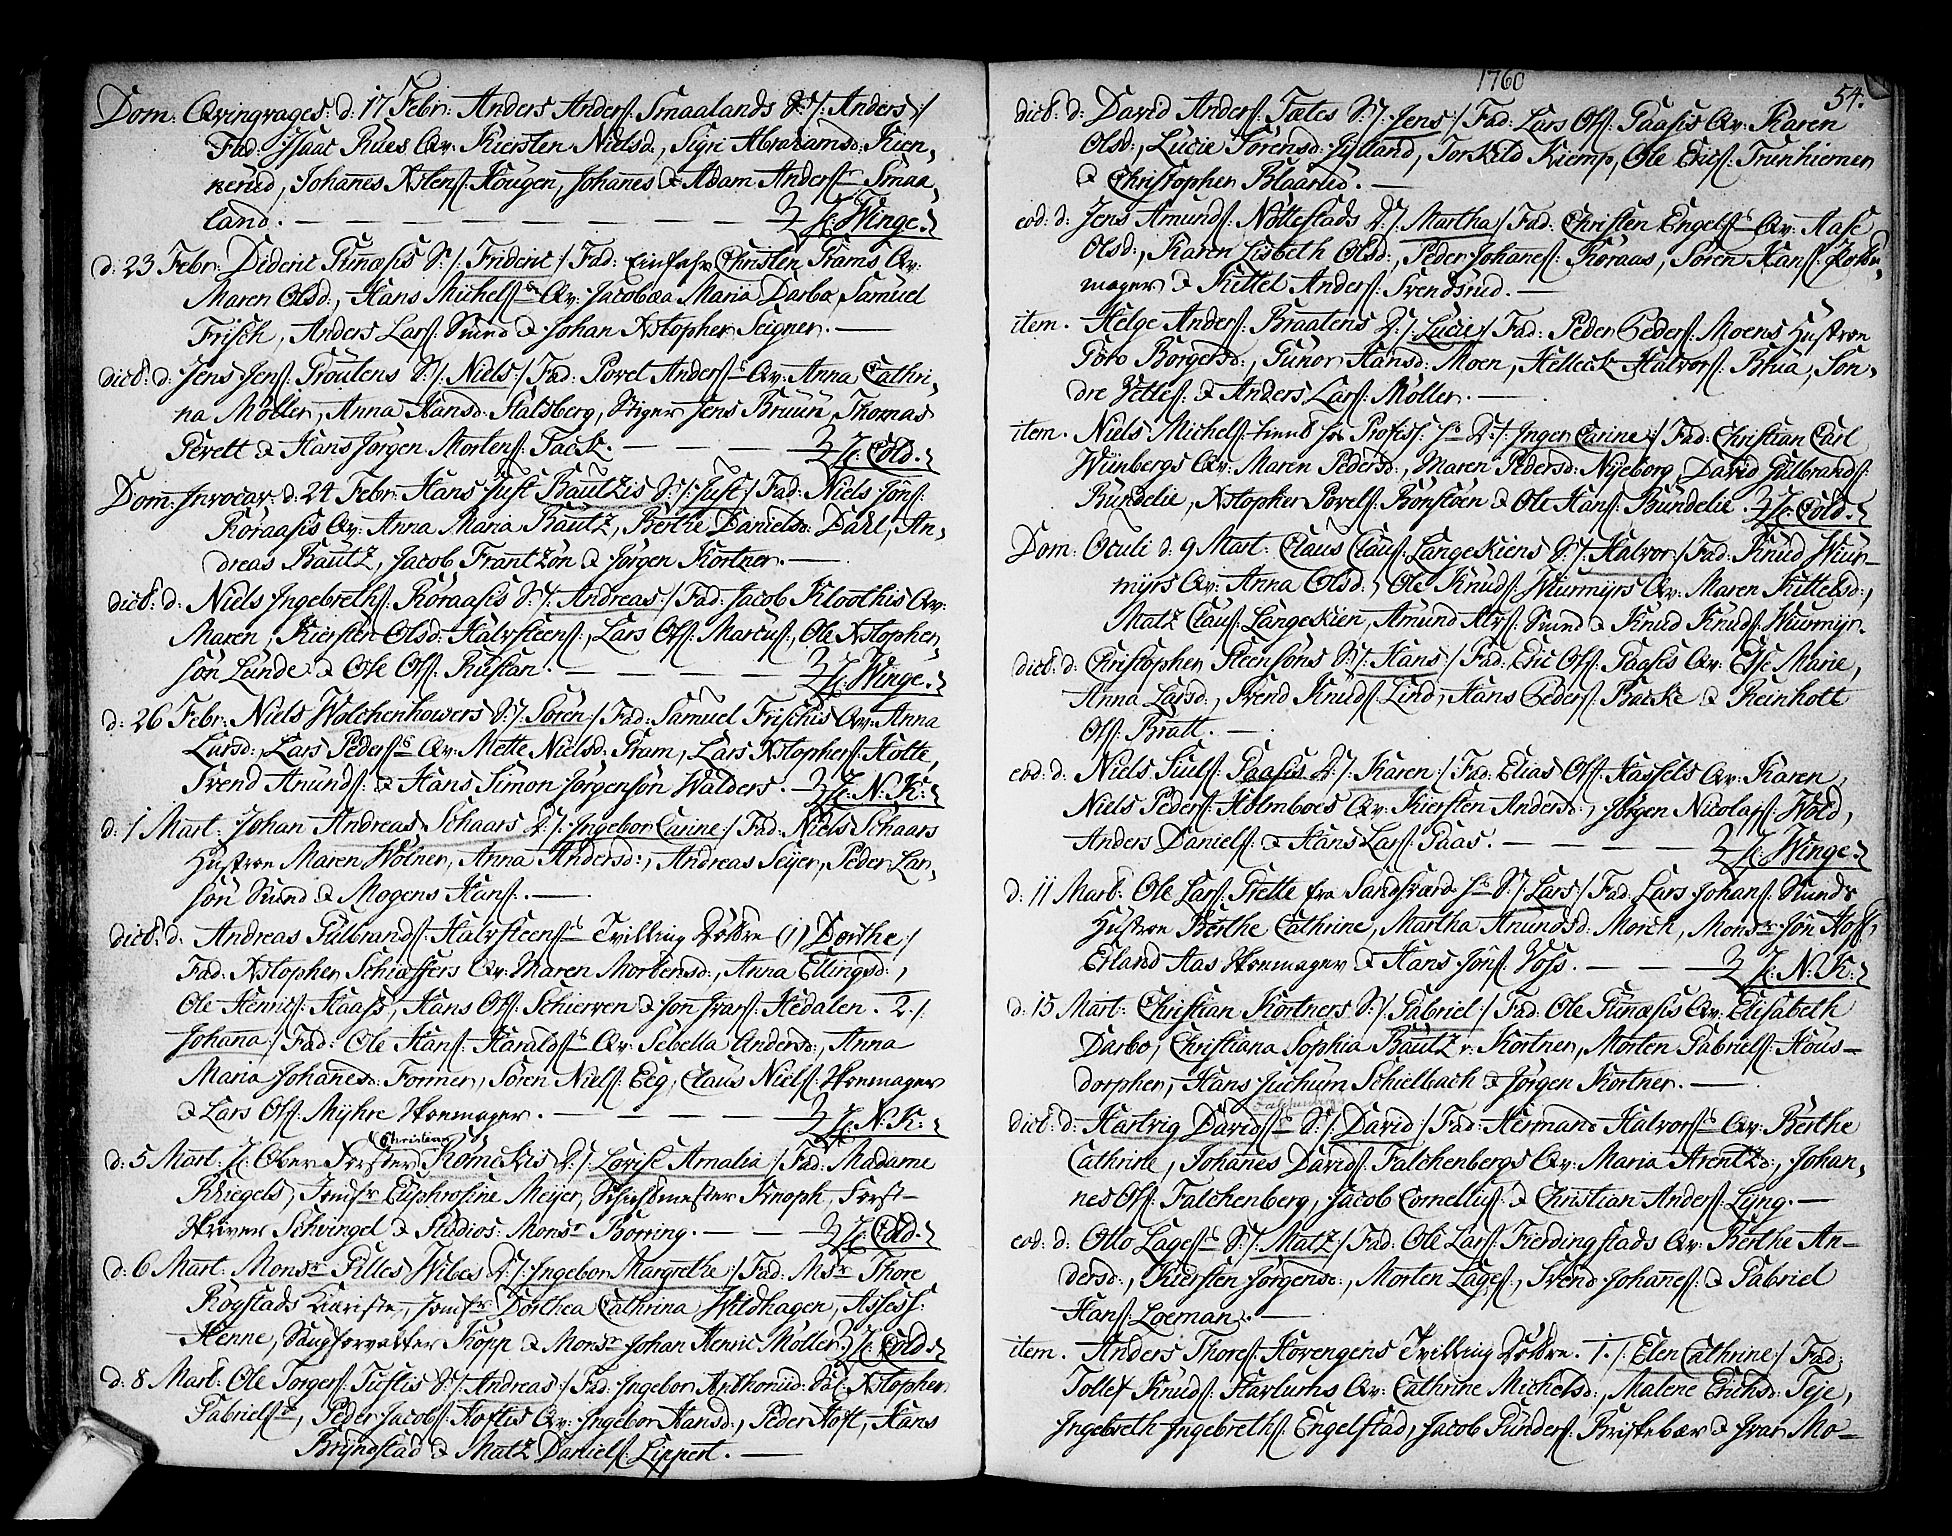 Dom: Qvinqvages: d: 17 Febr: Anders Anders: Smaalands S: /: Anders :/
Fad: Isaac Rues Qv: Kiersten Nielsd:, Sigri Abrahamsd: Kien,
nerud, Johanes Xstens: Hougen, Johanes & Adam Anderss: Smaa,
land. — H: Winge.
d: 23 Febr: Dideric Gunæsis S: /: Frideric :/ Fad: Einfahr Christen Frams Qv:
Maren Olsd:, Hans Michels: Qv: Jacobæa Maria Darbo, Samuel
Frisch, Anders Lars: Sund & Johan Xstopher Seigner. —
dict: d: Jens Jens: Groutens S: /: Niels :/ Fad: Povel Anders: Qv: Anna Cathri,
na Møller, Anna Hansd: Stalsberg, Stiger Jens Bruun, Thomas
Perett & Hans Jørgen Mortens: Sack. — H: Cold.
Dom: Invocav: d: 24 Febr: Hans Just Bautzis S: /: Just :/ Fad: Niels Jøns:
Koraasis Qv: Anna Maria Bautz, Berthe Danielsd: Dahl, An,
dreas Bautz, Jacob Frantzøn & Jørgen Kortner. —
dict: d: Niels Ingebreths: Koraasis S: /: Andreas :/ Fad: Jacob Kloothis Qv:
Maren, Kiersten Olsd: Halvsteens:, Lars Ols: Marcus:, Ole Xstopher,
søn Lunde & Ole Ols: Rustan. — H: Winge.
d: 26 Febr: Niels Wolchenhowers S: /: Søren :/ Fad: Samuel Frischis Qv: Anna
Larsd:, Lars Peders: Qv: Mette Nielsd: Fram, Lars Xstophers: Holte,
Svend Amunds: & Hans Simon Jørgensøn Walders. — H: N: K:
d: 1 Mart: Johan Andreas Schaars D: /: Ingebor Carine :/ Fad: Niels Schaars
Hustroe Maren Wølner, Anna Andersd:, Andreas Seyer, Peder Lar,
søn Sund & Mogens Hans: —
dict: d: Andreas Gulbrands: Halvsteens: Tvilling Døttre (1) Dorthe :/
Fad: Xstopher Schæffers Qv: Maren Mortensd:, Anna Ellingsd:,
Ole Henrics: Haass, Hans Ols: Schierven & Jon Ivars: Hedalen. 2 /:
Johana :/ Fad: Ole Hans: Haralds: Qv: Sebella Andersd:, Anna
Maria Johanesd: Former, Søren Niels: Eeg, Claus Niels: Skoemager
& Lars Ols: Myhre Skoemager. — H: N: K:
Christian
d: 5 Mart: H: Ober Forster Romakis D: /: Lovise Amalia :/ Fad: Madame
Kriegels, Jomfr Euphrosine Meyer, Schichtmester Knoph, Forst-
skriver Schvingel & Studios: Monsr Borring. — H: Cold.
d: 6 Mart: Monsr Gilles Wibes D: /: Ingebor Margrethe :/ Fad: Msr Thore
Røgstads Kieriste, Jomfr Dorthea Cathrina Wildhagen, Assess:
Henne, Haugforvalter Kopp & Monsr Johan Henric Møller. H: Cold.
d: 8 Mart: Ole Torgers: Tuftis S: /: Andreas :/ Fad: Ingebor Anthonid: Sal: Xstopher
Gabriels:, Peder Jacobs: Hoftes Qv: Ingebor Hansd:, Peder Hoft, Hans
Bryngstad & Matz Daniels: Lippert. —
1760
54.
dict: d: David Anders: Tætes S: /: Jens :/ Fad: Lars Ols: Gaasis Qv: Karen
Olsd:, Lucie Sørensd: Jylland, Torskild Kiemp, Ole Erics: Trunhiemen
& Christopher Blaarud. —
eod: d: Jens Amunds: Nøttestads D: /: Martha :/ Fad: Christen Engels: Qv: Aase
Olsd:, Karen Lisbeth Olsd:, Peder Johanes: Koraas, Søren Hans: Pottu,
mager & Kittel Anders: Svendsrud. —
item. Helge Anders: Braatens D: /: Lucie :/ Fad: Peder Peders: Moens Hustroe
Goro Borgersd:, Gunor Hansd: Moen, Helleck Halvors: Brua, Son,
dre Vetles: & Anders Lars: Møller. —
item. Niels Michels: Profess: D: /: Inger Carine :/ Fad: Christian Carl
Wunbergs Qv: Maren Pedersd:, Maren Pedersd: Nyeborg, David Gulbrands:
Bundelie, Xstopher Povels: Bonstøen & Ole Hans: Bundelie. H: Cold.
Dom: Oculi d: 9 Mart: Claus Claus: Langeskiens S: /: Halvor :/ Fad: Knud Wiur-
myrs Qv: Anna Olsd:, Ole Knuds: Wiurmyrs Qv: Maren Kittelsd:,
Matz Claus: Langeskien, Amund Alvs: Sund & Knud Knuds: Wiurmyr.
dict: d: Christopher Steensøns S: /: Hans :/ Fad: Eric Ols: Gaasis Qv: Else Marie,
Anna Larsd:, Svend Knuds: Lind, Hans Peders: Backe & Reinholt
Ols: Bratt. —
eod: d: Niels Siuls: Gaasis D: /: Karen :/ Fad: Elias Ols: Hassels Qv: Karen,
Niels Peders: Holmboes Qv: Kiersten Andersd:, Jørgen Nicolays: Wold,
Anders Daniels: & Hans Lars: Gaas. — H: Winge.
d: 11 Mart: Ole Lars: Grette fra Sandsværd S: /: Lars :/ Fad: Lars Johans: Sunds
Hustroe Berthe Cathrine, Martha Amundsd: Morck, Monsr Jøn Hoff,
Erland Aas Skoemager & Hans Jøns: Voss. — H: N: K:
d: 15 Mart: Christian Kortners S: /: Gabriel :/ Fad: Ole Gunæsis Qv: Elisabeth
Darbo, Christiana Sophia Bautz v: Kortner, Morten Gabriels: Hous-
dorpher, Hans Juchum Schielbach & Jørgen Kortner. —
Falchenberg
dict: d: Hartvig Davids: S: /: David :/ Fad: Hermand Halvors: Qv: Berthe
Cathrine, Johanes Davids: Falchenbergs Qv: Maria Arentzd:, Johan,
nes Ols: Falchenberg, Jacob Cornellius: & Christian Anders: Lyng. —
eod: d: Otto Lages: S: /: Matz :/ Fad: Ole Lars: Fierdingstads Qv: Berthe An-
dersd:, Kiersten Jørgensd:, Morten Lages:, Svend Johanes: & Gabriel
Hans: Loeman. —
item. Anders Thores: Hovengens Tvilling Døttre. 1. /: Elen Cathrine :/ Fad:
Tollef Knuds: Harlums Qv: Cathrine Michelsd:, Malene Erichsd: Teje,
Ingebreth Ingebreths: Engelstad, Jacob Gunders: Kriskebær & Ivar Mo-